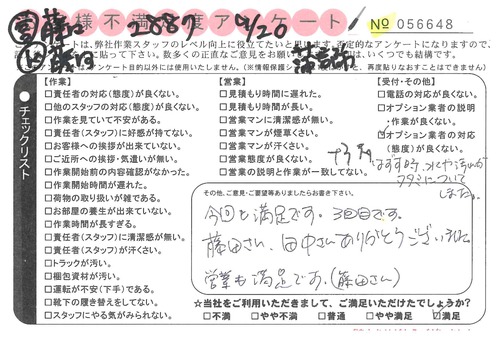 お客様不満足度アンケート
2887 9/20
№ 056648
トは、弊社作業スタッフのレベル向上に役立てたいと思います。否定的なアンケートになりますので、
チェックリスト
【作業】
□責任者の対応(態度)が良くない。
□他のスタッフの対応(態度)が良くない。
□作業を見ていて不安がある。
□責任者(スタッフ)に好感が持てない。
□お客様への挨拶が出来ていない。
□ご近所への挨拶・気遣いが無い。
□作業開始前の内容確認がなかった。
□作業開始時間が遅れた。
□荷物の取り扱いが雑である。
□お部屋の養生が出来ていない。
□作業時間が長すぎる。
□責任者(スタッフ)に清潔感が無い。
□責任者(スタッフ)が汗くさい。
□トラックが汚い。
□梱包資材が汚い。
□運転が不安(下手)である。
□靴下の履き替えをしてない。
□スタッフにやる気がみられない。
【営業】
□見積もり時間に遅れた。
□見積もり時間が長い。
□営業マンに清潔感が無い。
□営業マンが煙草くさい。
□営業マンが汗くさい。
□営業態度が良くない。
□営業の説明と作業が一致してない。
【受付・その他】
□電話の対応が良くない。
□オプション業者の説明
作業が良くない。
□オプション業者の対応
(態度)が良くない。
はずす時、水や汚れが
その他、ご意見・ご要望等ありましたらお書き下さい。
今回も満足です。3回目です。
藤田さん、田中さんありがとうございました
営業も満足です。(藤田さん)
☆当社をご利用いただきまして、ご満足いただけたでしょうか?
□不満 □やや不満 □普通 □やや満足 □満足